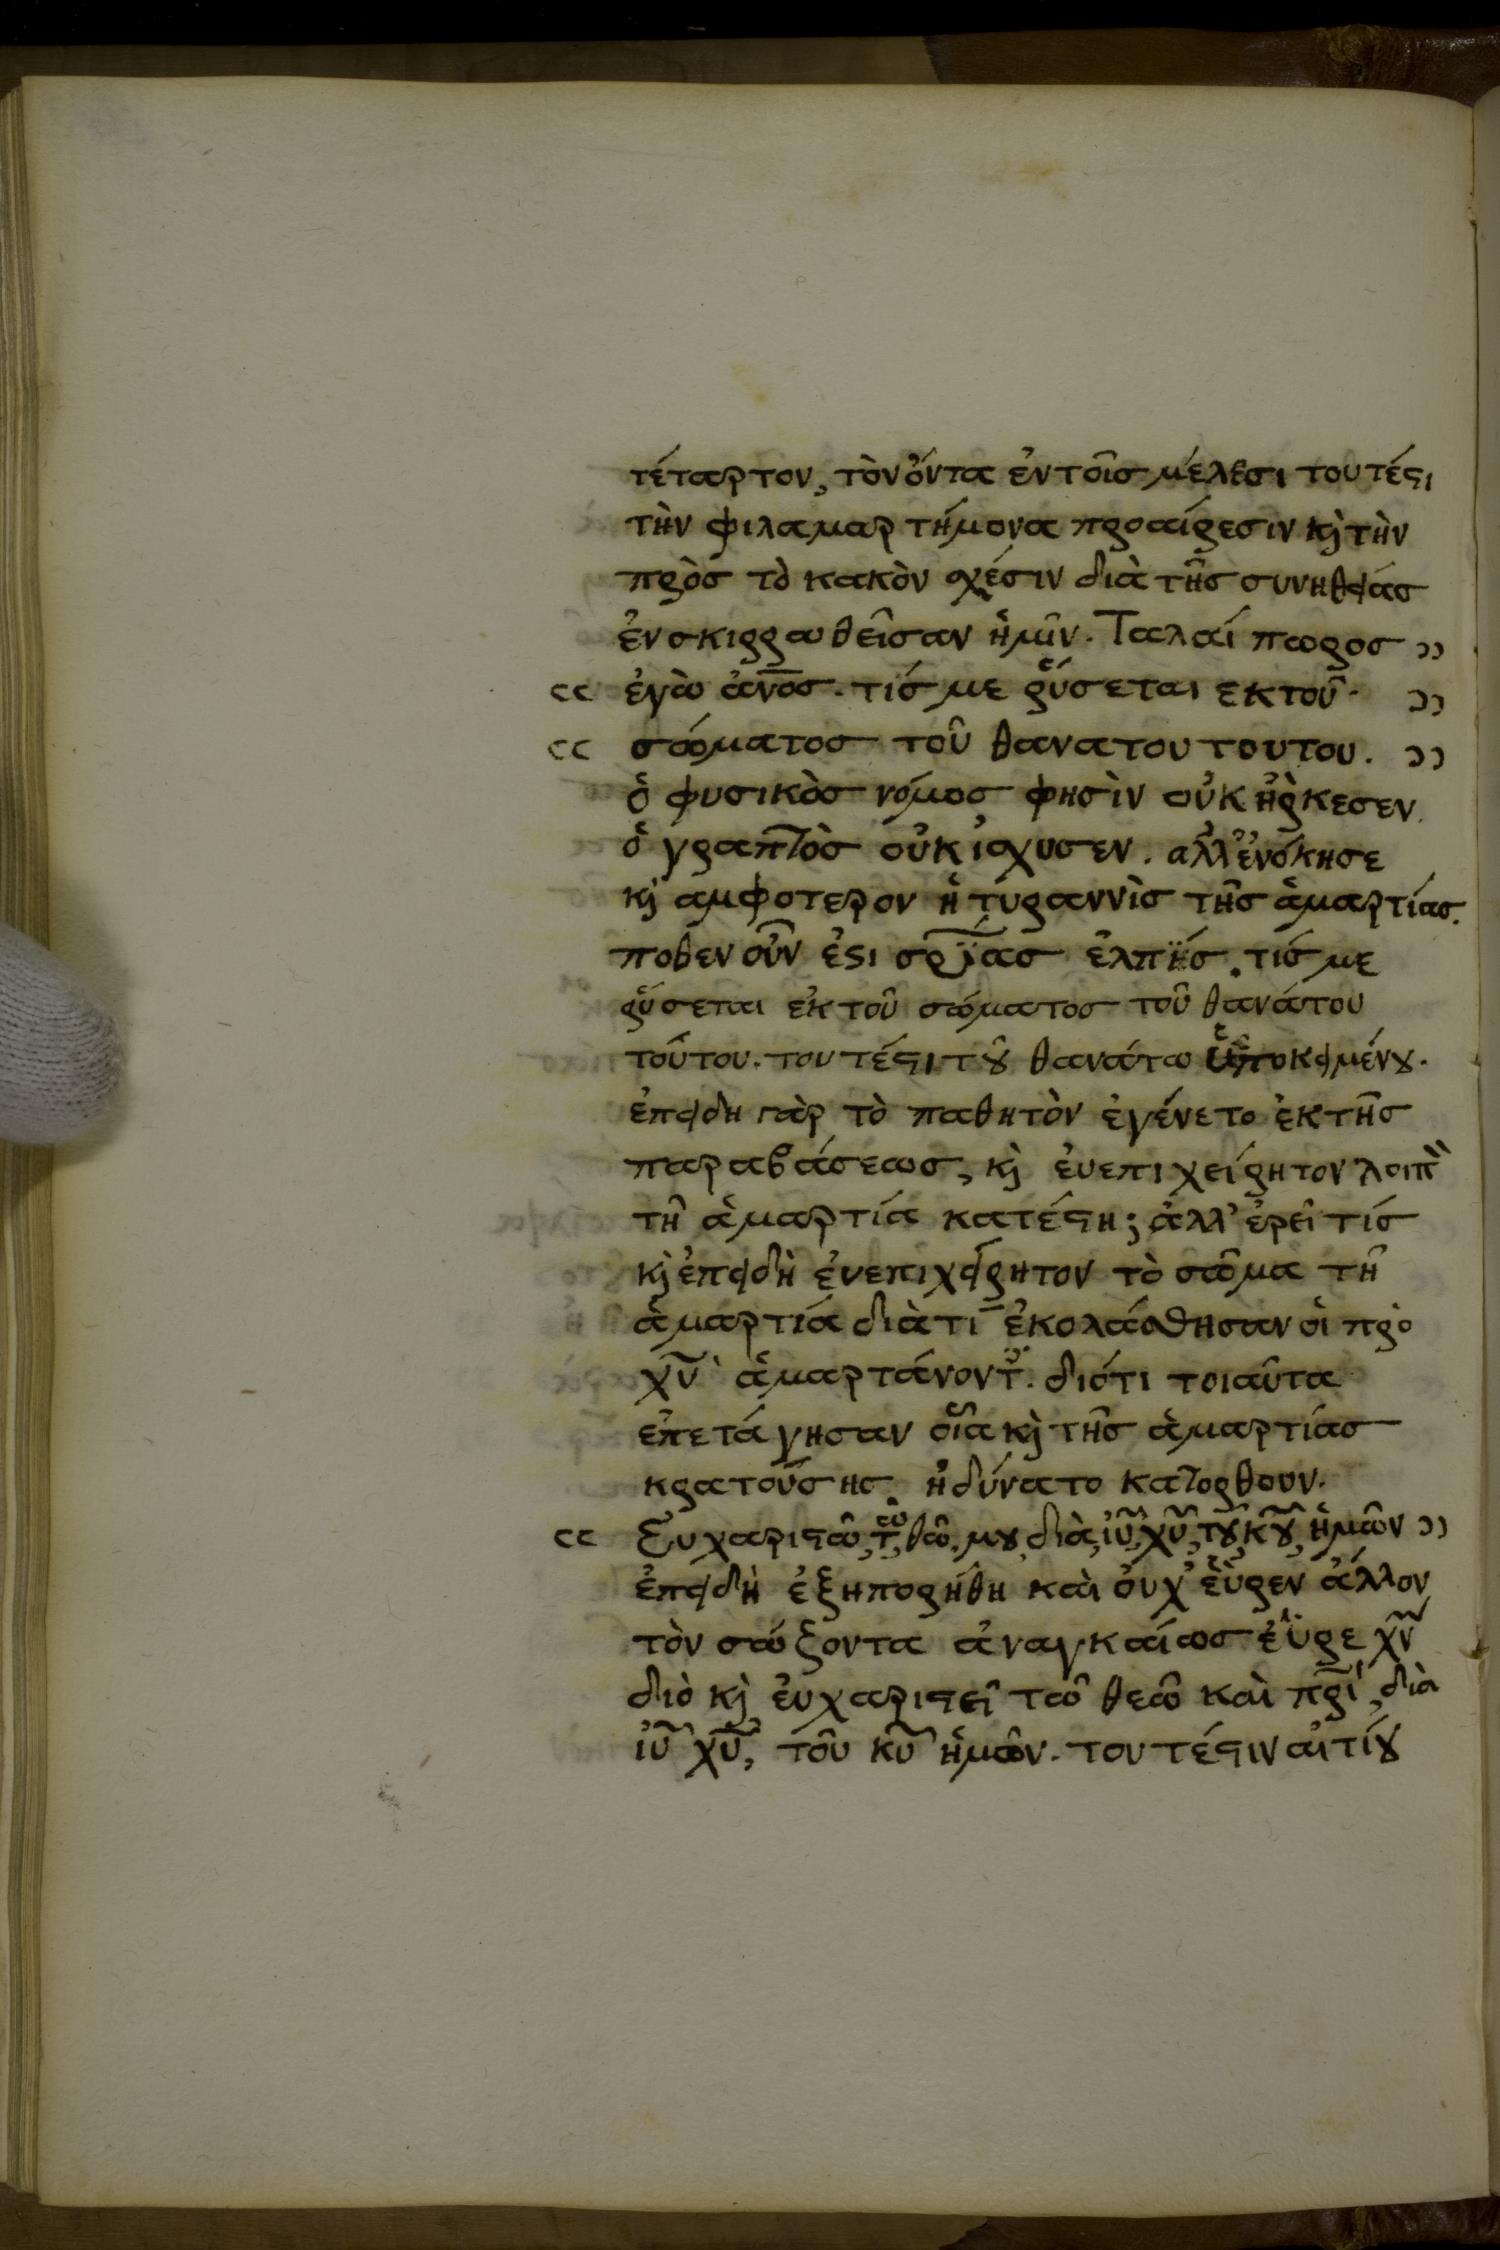 τέταρτον, τὸν ὄντα ἐν τοῖς μέλεσι τουτέςι
τὴν φιλαμαρτήμονα προαίρεσιν κὶ τὴν
πρὸς τὸ κακὸν σχέσιν διὰ τῆς συνηθείας
ἐνσκιρρωθεῖσαν ἡμῖν. Ταλαίπωρος ))
(( ἐγὼ ἄνος. τίς με ῥύσεται εκ τοῦ. ))
(( σώματος τοῦ θανατου τουτου. ))
ὁ φυσικὸς νόμος φησὶν οὐκ ἤρκεσεν.
ὁ γραπτὸς οὐκ ἴσχυσεν. αλλ' ἐνίκησε
κὶ αμφοτερον ἡ τυραννὶς τῆς ἁμαρτίας.
ποθεν οὖν ἐςι σρίας ἐλπίς. τίς με
ῥύσεται ἐκ τοῦ σώματος τοῦ θανάτου
τούτου. τουτέςι τȣ θανάτω ὑποκειμένȣ.
ἐπειδη γὰρ τὸ παθητὸν ἐγένετο ἐκ τῆς
παραβάσεως, κὶ ἐυεπιχείρητον λοιπὸ
τῆ ἁμαρτία κατέςη; ἀλλ' ἐρεῖ τίς
κὶ ἐπειδὴ ἐυεπιχείρητον τὸ σῶμα τῆ
ἁμαρτία διὰ τι ἐκολάσθησαν οἱ πρὸ
χυ ἁμαρτάνοντ. διότι τοιαῦτα
ἐπετάγησαν οἷα κὶ τῆς ἁμαρτίας
κρατούσης ἠδύνατο κατορθουν.
(( Ἐυχαριςῶ τῶ θῶ μȣ διὰ ἰυ χυ τȣ κȣ ἡμῶν ))
ἐπειδὴ ἐξηπορήθη καὶ ὀυχ' ἑῦρεν ἄλλον
τὸν σώζοντα ἀναγκαίως ἑῦρε χν
διὸ κὶ ἐυχαριςεῖ τῶ θεῶ καὶ πρὶ, διὰ
ἰυ χυ, τοῦ κυ ἡμῶν. τουτέςιν αἰτίȣ